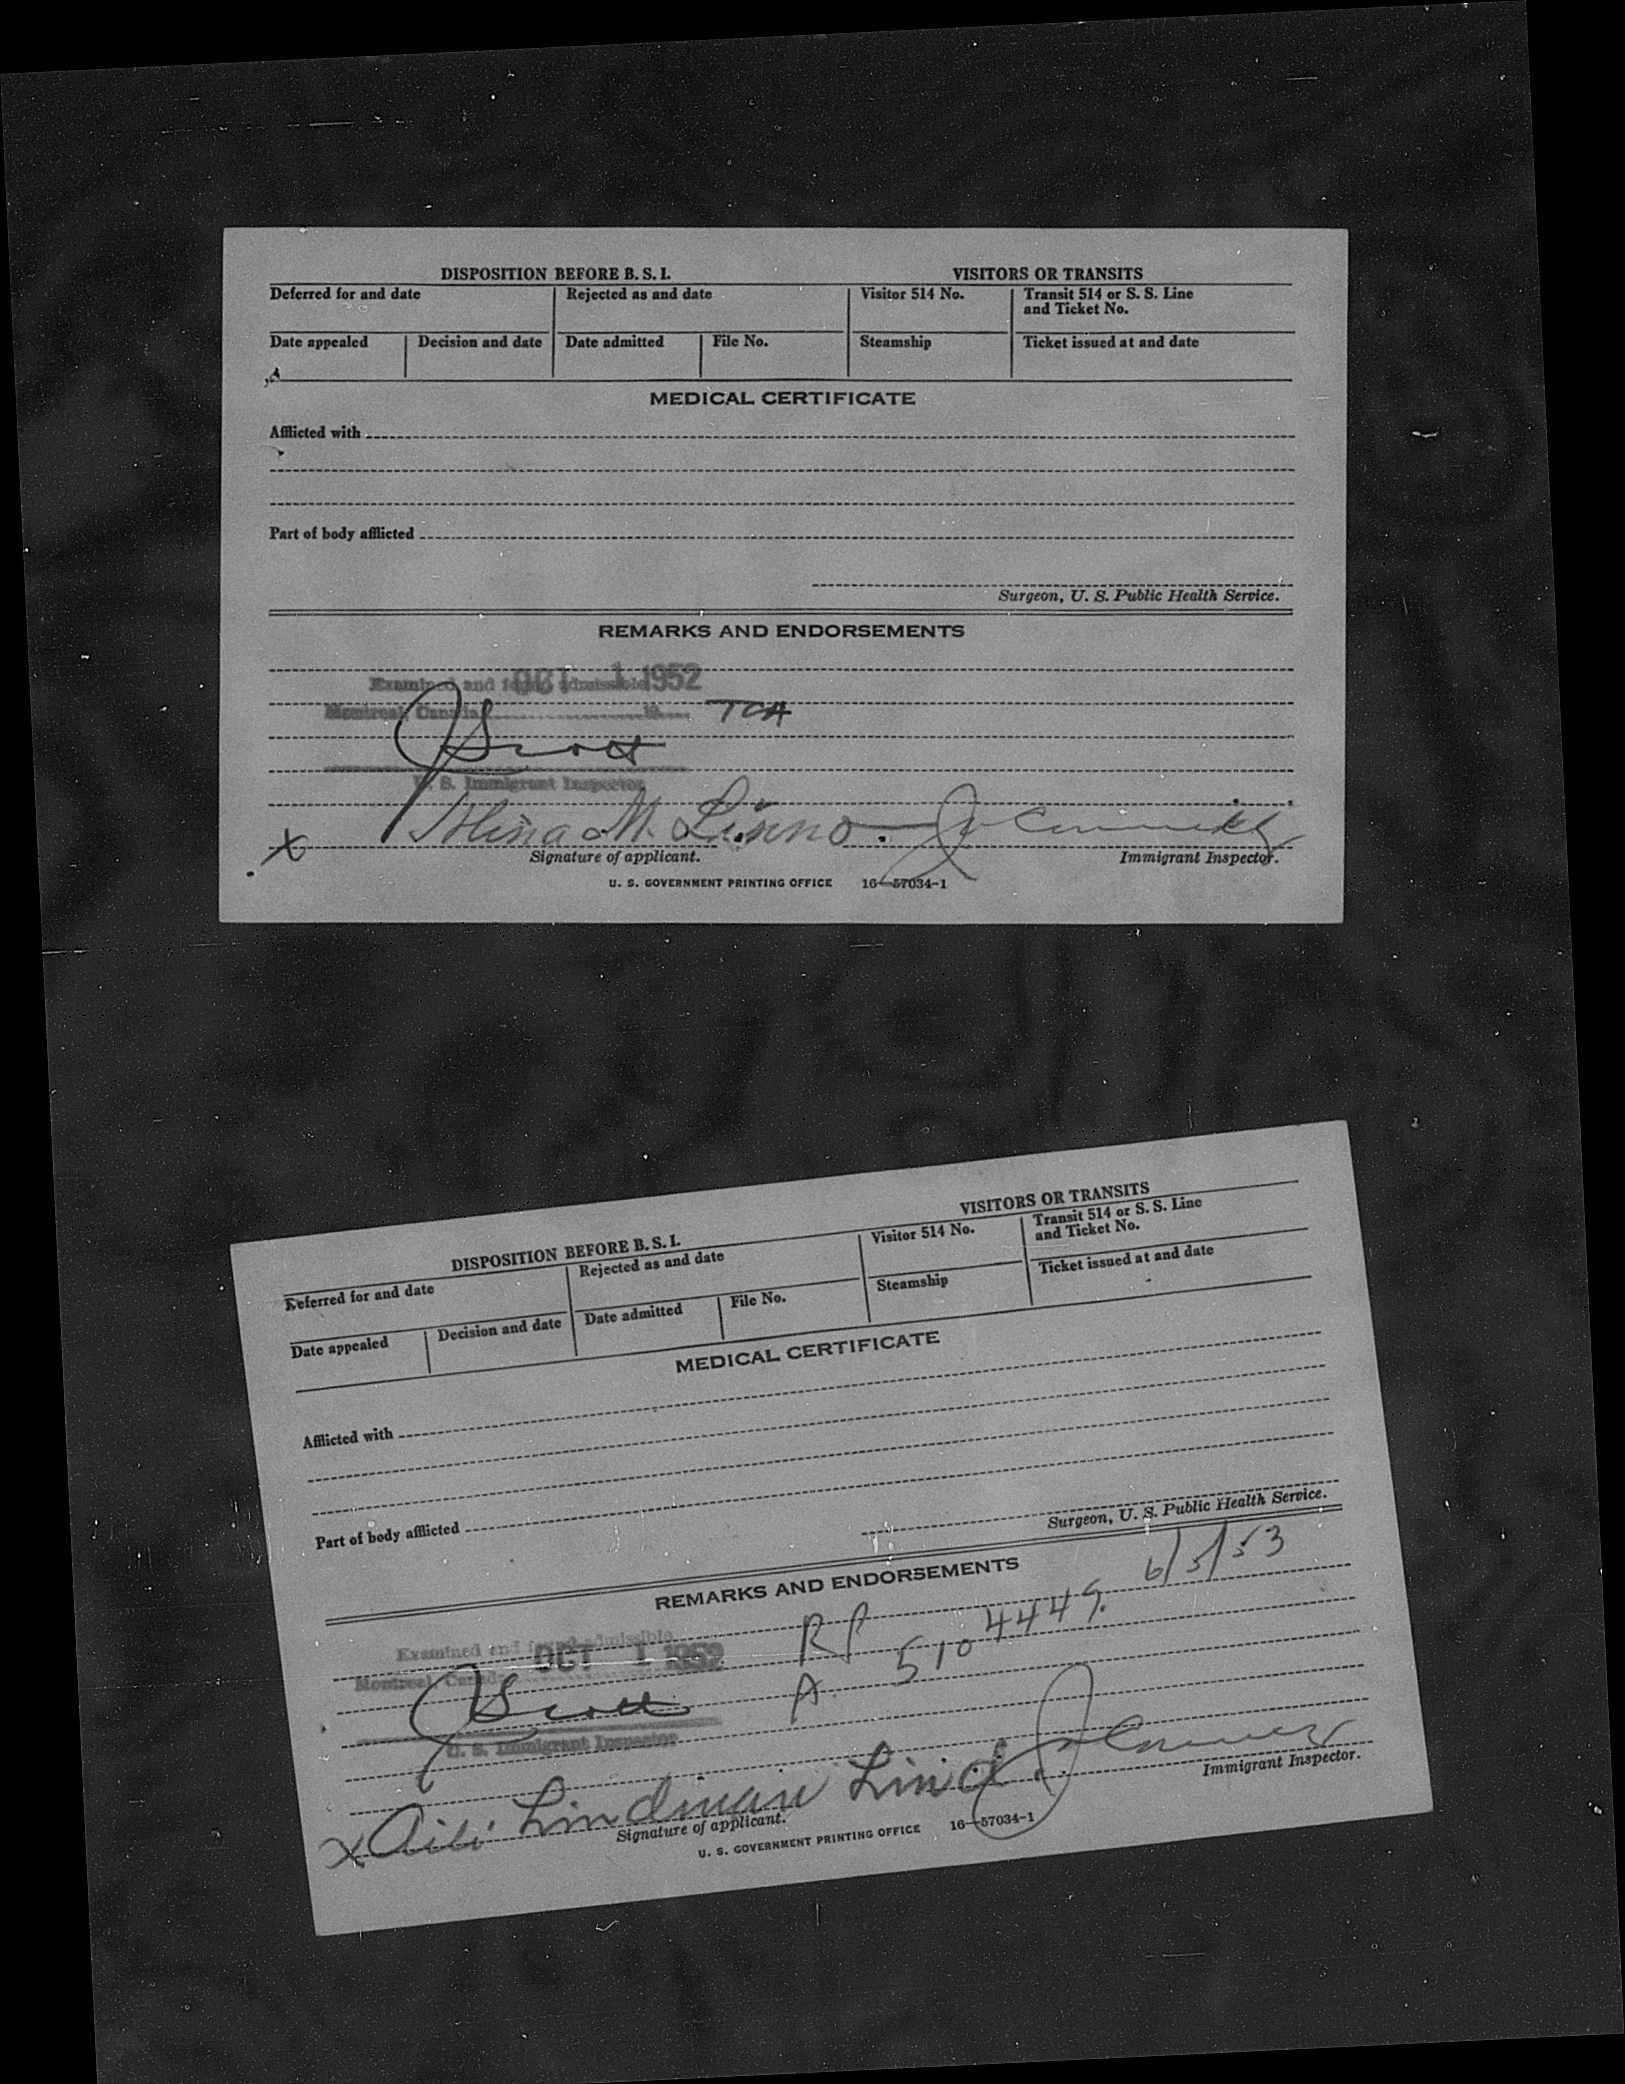 DISPOSITION BEFORE B. S. I. VISITORS OR TRANSITS
Deferred for and date Rejected as and date Visitor 514 No. Transit 514 or S. S. Line and Ticket No.
Date appealed Decision and date Date admitted File No. Steamship Ticket issued at and date
MEDICAL CERTIFICATE
Afflicted with
Part of body afflicted
Surgeon, U. S. Public Health Service.
REMARKS AND ENDORSEMENTS
Examined and found admissible OCT 1 1952
Montreal, Canada 19 TCA
J Scott
U. S. Immigrant Inspector
X M. Linno.
Signature of applicant. Immigrant Inspector.
U. S. GOVERNMENT PRINTING OFFICE 16—57034-1
DISPOSITION BEFORE B. S. I. VISITORS OR TRANSITS
Deferred for and date Rejected as and date Visitor 514 No. Transit 514 or S. S. Line and Ticket No.
Date appealed Decision and date Date admitted File No. Steamship Ticket issued at and date
MEDICAL CERTIFICATE
Afflicted with
Part of body afflicted
Surgeon, U. S. Public Health Service.
REMARKS AND ENDORSEMENTS 6/5/53
Examined and found admissible OCT 1 1952 RP 510 4449
Montreal, Canada A
J Scott
U. S. Immigrant Inspector
X Aili Lindman Lind.
Signature of applicant. Immigrant Inspector.
U. S. GOVERNMENT PRINTING OFFICE 16—57034-1